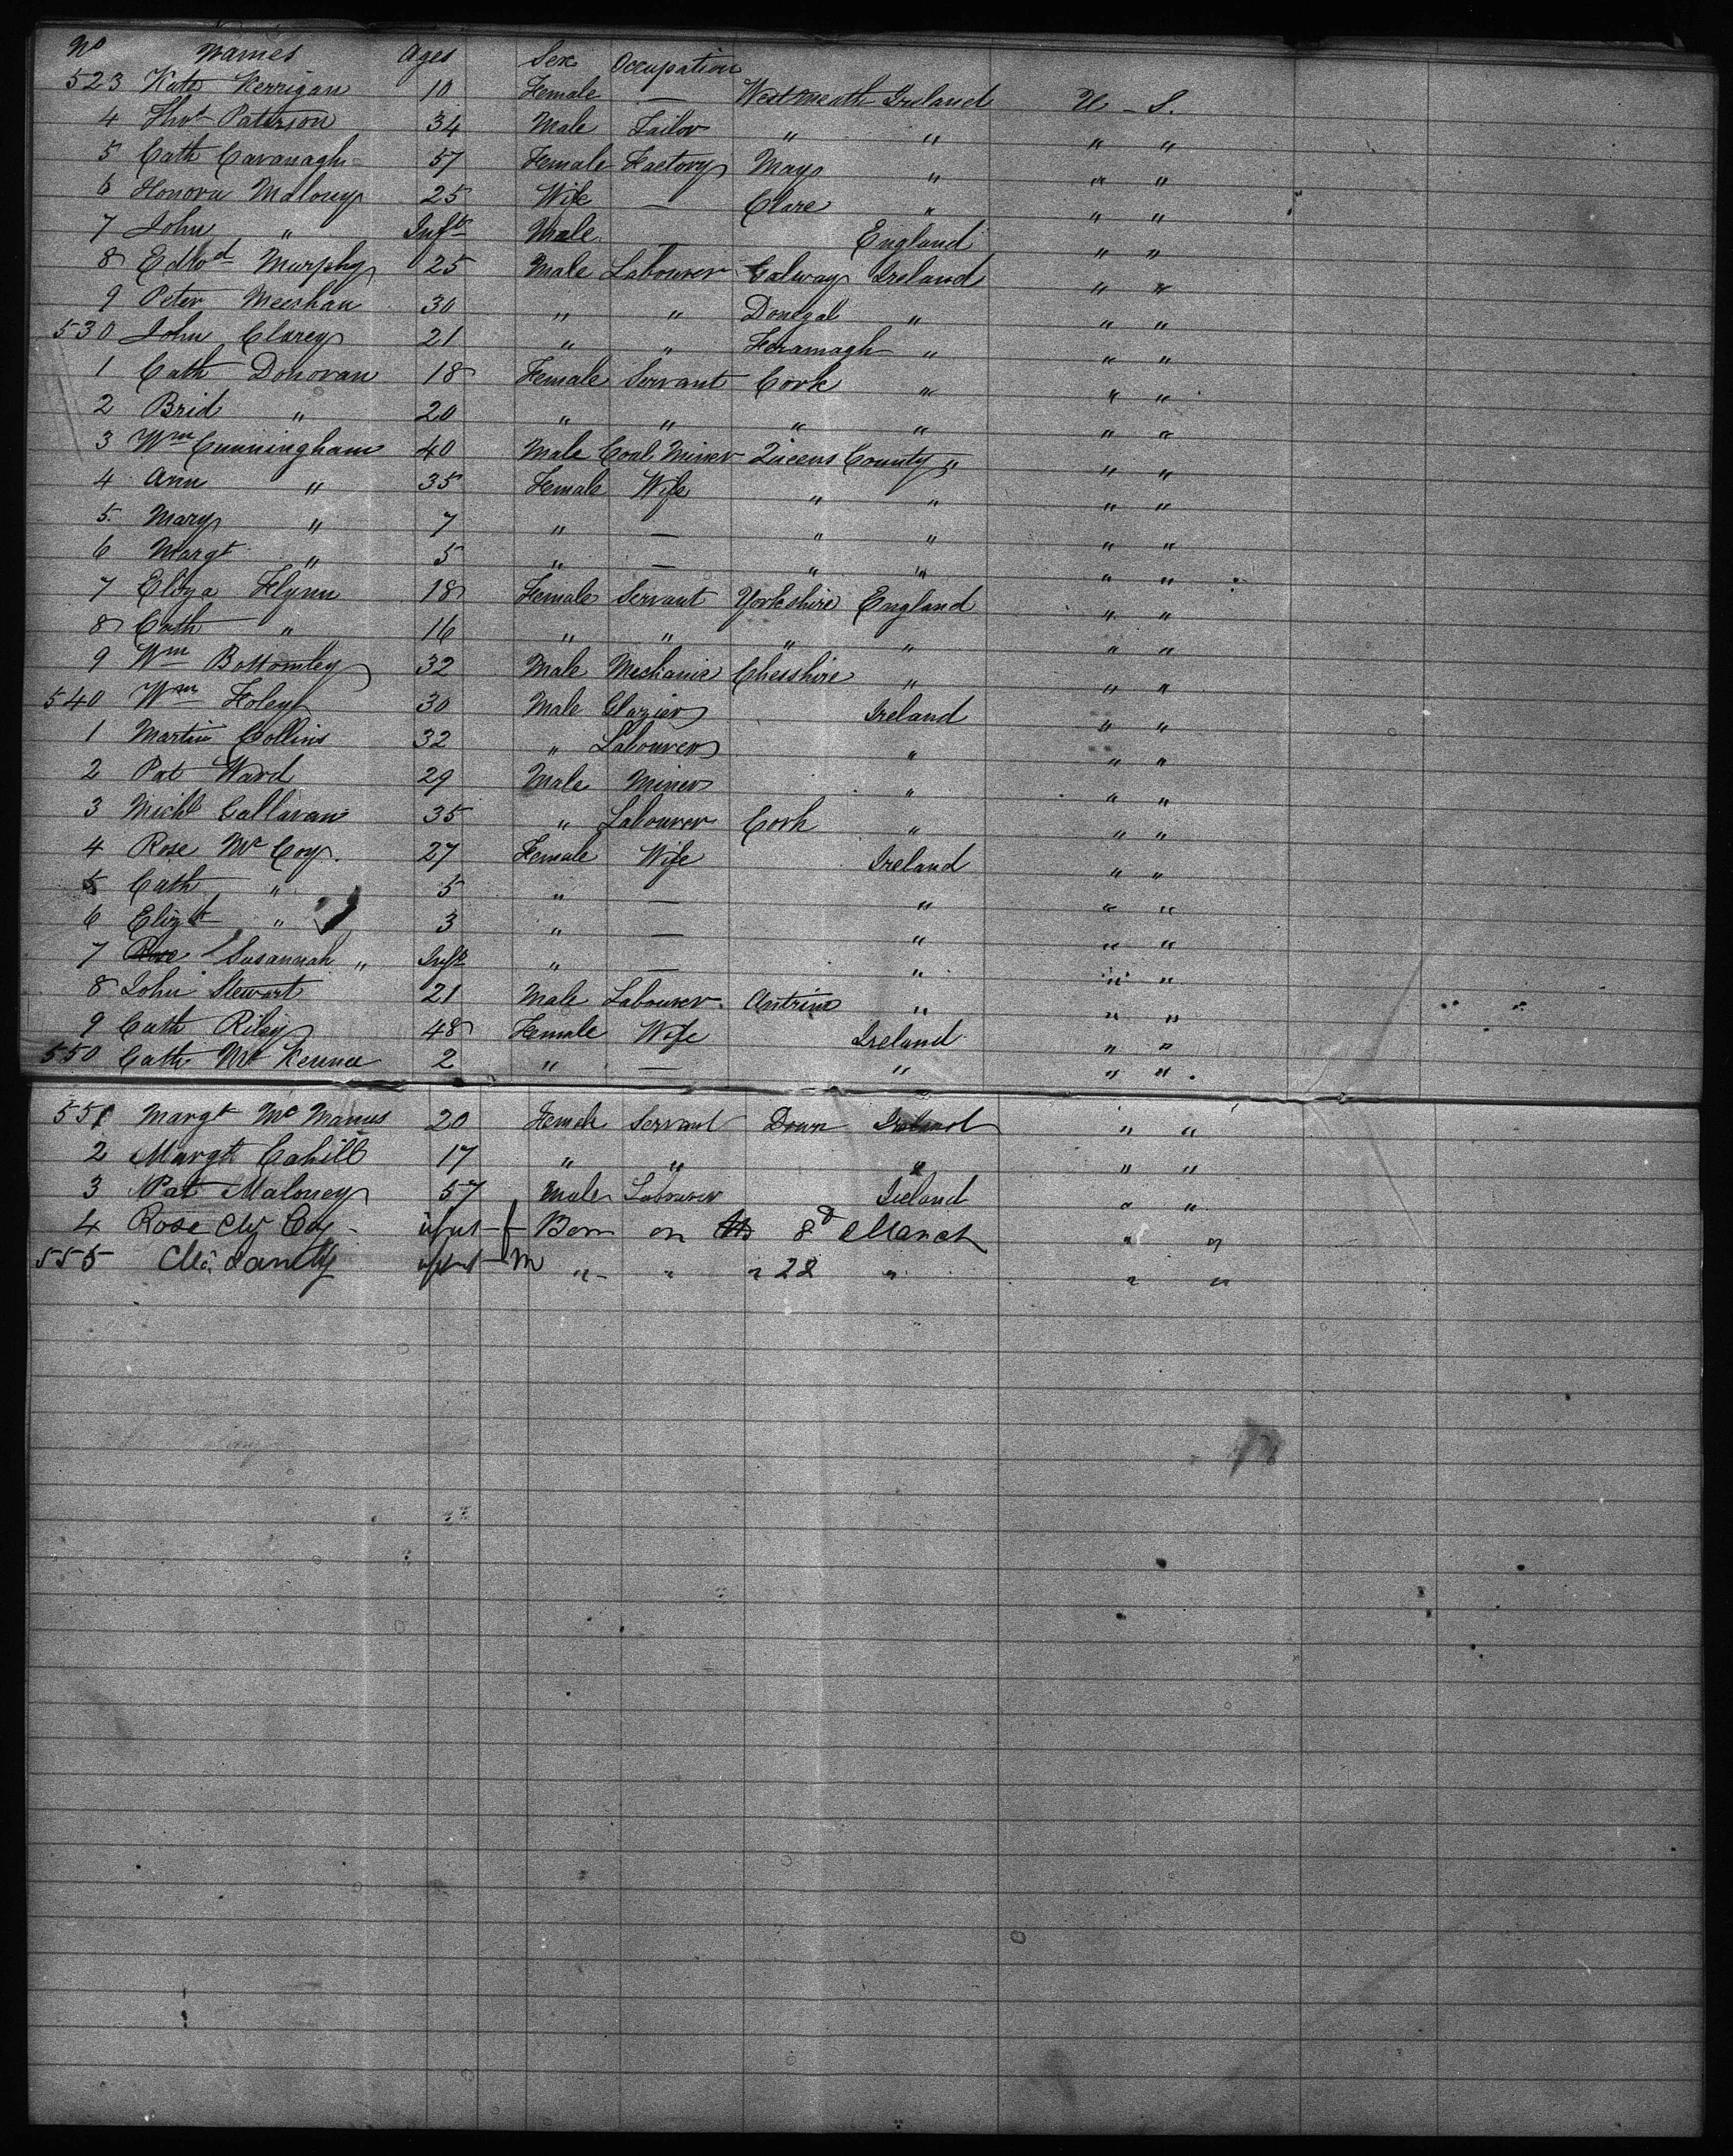 No Names Ages Sex Occupation
523 Kate Kerrigan 10 Female — Westmeath Ireland U - S.
4 Thos Paterson 34 Male Tailor " " " "
5 Cath Cavanagh 57 Female Factory Mayo " " "
6 Honora Maloney 25 Wife — Clare " " "
7 John " Inft Male — England " "
8 Edwd Murphy 25 Male Labourer Galway Ireland " "
9 Peter Meeshan 30 " " Donegal " " "
530 John Clarey 21 " " Feramagh " " "
1 Cath Donovan 18 Female Servant Cork " " "
2 Brid " 20 " " " " " "
3 Wm Cunningham 40 Male Coal Miner Queens County " " "
4 Ann " 35 Female Wife " " " "
5 Mary " 7 " — " " " "
6 Margt " 5 " — " " " "
7 Eliza Flynn 18 Female Servant Yorkshire England " "
8 Cath " 16 " " " " " "
9 Wm Bottomley 32 Male Mechanic Chesshire " " "
540 Wm Foley 30 Male Glazier Ireland " "
1 Martin Collins 32 " Labourer " " "
2 Pat Ward 29 Male Miner " " "
3 Michl Callavan 35 " Labourer Cork " " "
4 Rose Mc Coy 27 Female Wife Ireland " "
5 Cath " 5 " — " " "
6 Elizth " 3 " — " " "
7 Rose Susannah " Inft " — " " "
8 John Stewart 21 Male Labourer Antrim " " "
9 Cath Riley 48 Female Wife Ireland " "
550 Cath Mc Kenna 2 " — " " "
551 Margt Mc Manus 20 Female Servant Down Ireland " "
2 Margt Cahill 17 " " " " "
3 Pat Maloney 57 Male Labourer Ireland " "
4 Rose Mc Coy infant f Born on 8 March " "
555 Mc infant m " " " 22 " " "